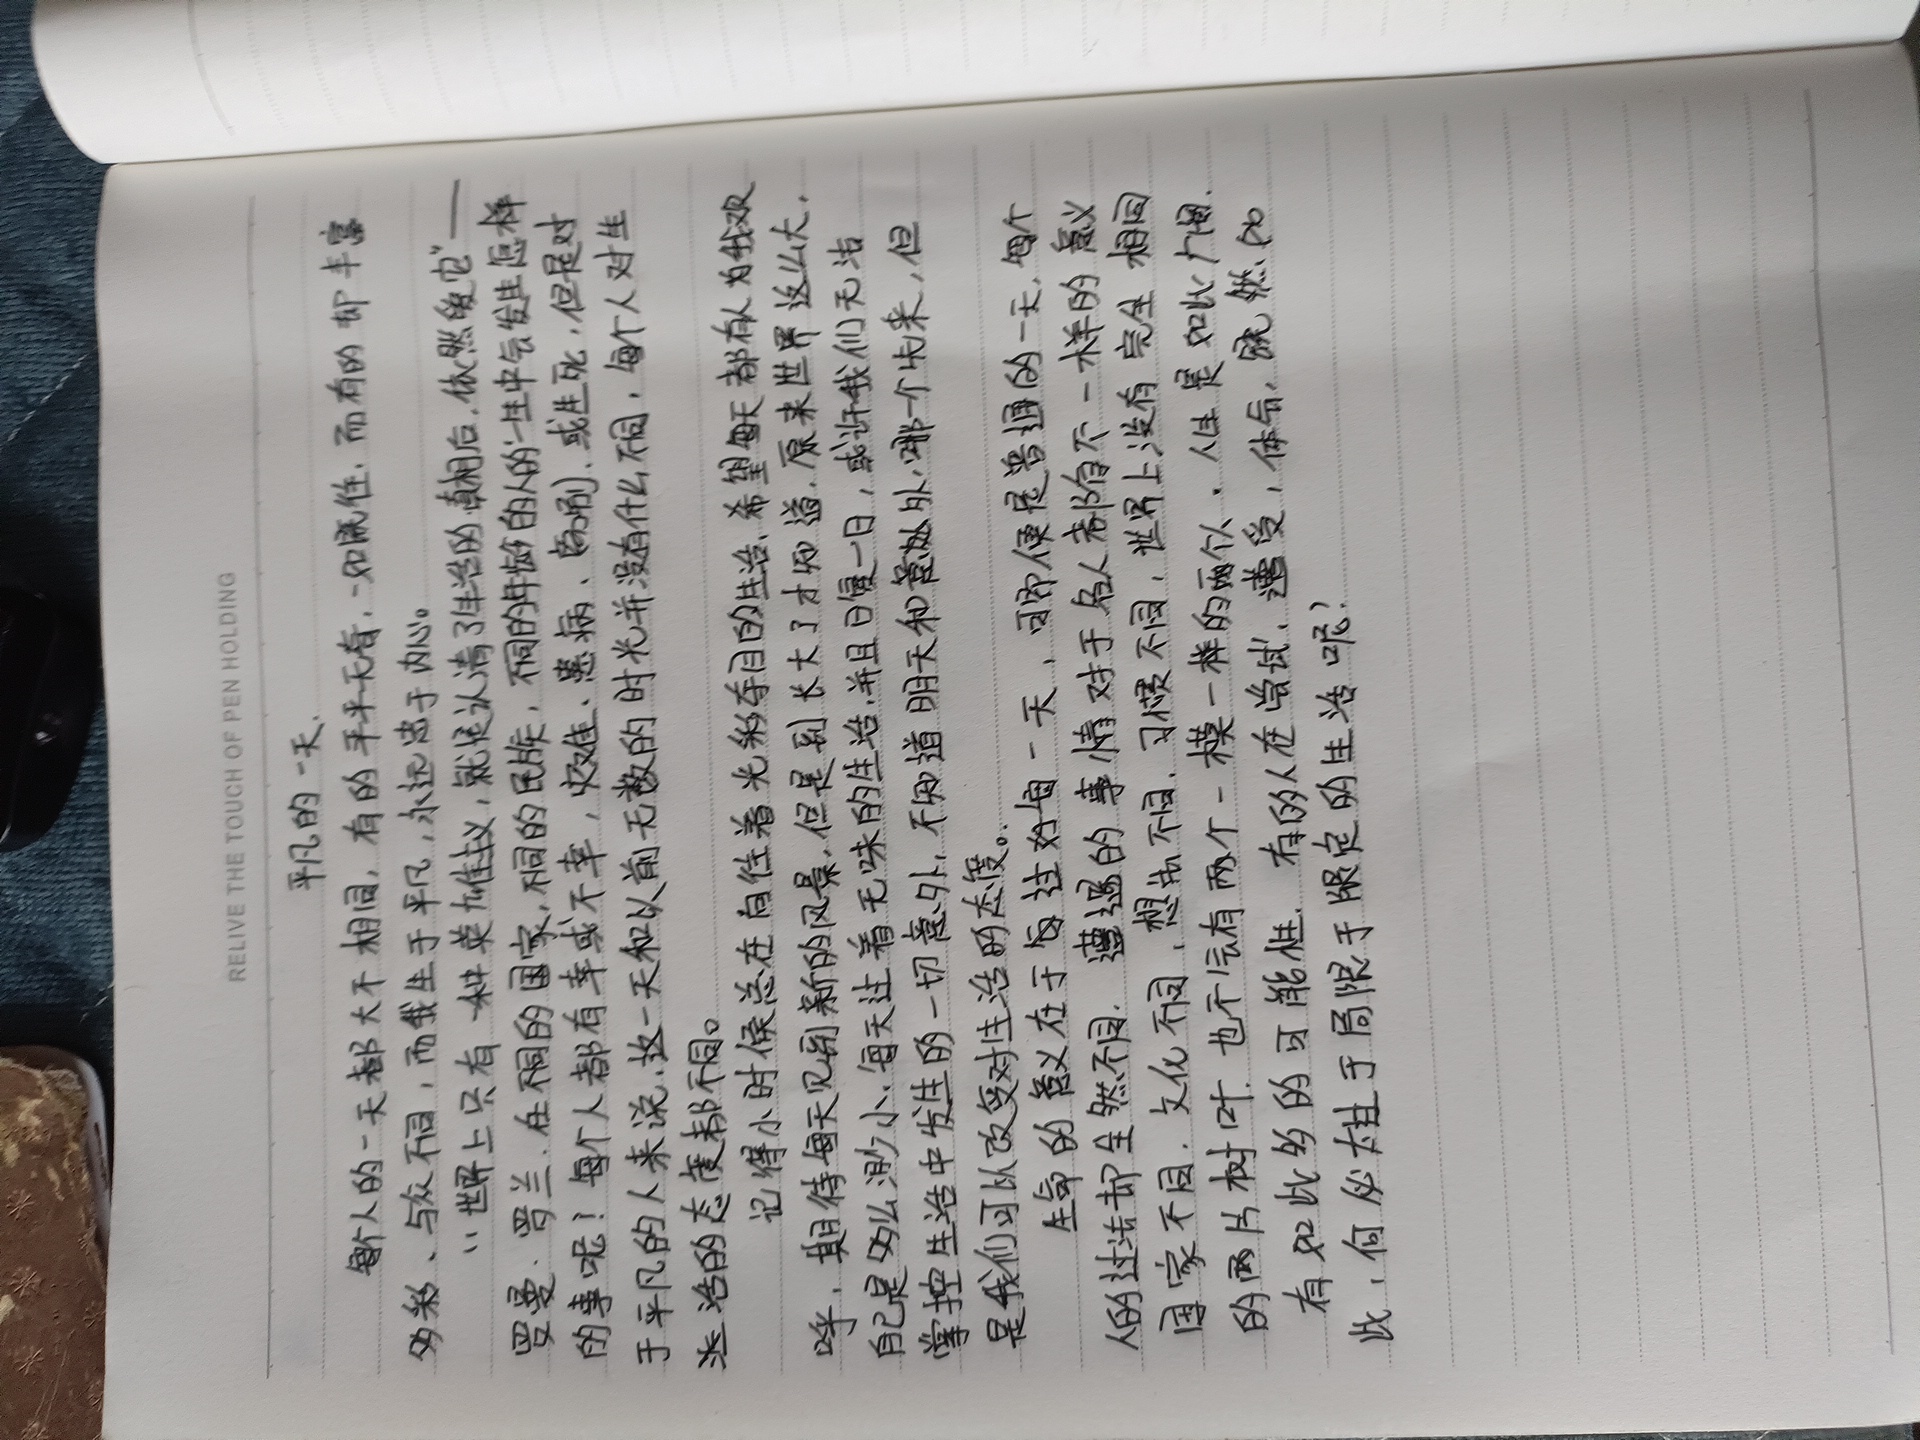 RELIVE THE TOUCH OF PEN HOLDING
平凡的一天.
每个人的一天都大不相同，有的平平无奇，一如既往，而有的却丰富
多彩、与众不同，而我生于平凡，永远忠于内心。
"世界上只有一种英雄主义，就是认清了生活的真相后，依然爱它"——
罗曼．罗兰．在不同的国家，不同的民族，不同的年龄的人的一生中会发生怎样
的事呢？每个人都有幸或不幸，灾难、患病、离别、或生死，但是对
于平凡的人来说，这一天和以前无数的时光并没有什么不同，每个人对生
活的态度都不同。
记得小时候总在向往着光彩夺目的生活，希望每天都有人为我欢
呼，期待每天见到新的风景，但是到长大了才知道，原来世界这么大，
自己是多么渺小、每天过着无味的生活，并且日复一日，或许我们无法
掌控生活中发生的一切意外，不知道明天和意外，哪一个先来，但
是我们可以改变对生活的态度。
生命的意义在于每过好每一天，即便是普通的一天，每个
人的过法却全然不同．遭遇的事情对于名人都有不一样的意义
国家不同．文化不同，想法不同．习惯不同，世界上没有完全相同
的两片树叶．也不会有两个一模一样的两个人．人生是如此广阔．
有如此多的可能性．有的人在尝试，遭受，体会，既然如
此，何必大过于局限于限定的生活呢？